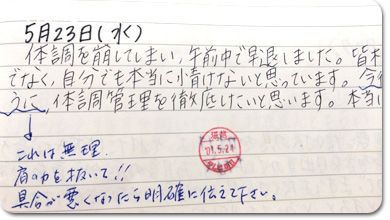 5月23日(水)
体調を崩してしまい,午前中で早退しました。皆
でなく,自分でも本当に情けないと思っています。今
うに,体調管理を徹底したいと思います。本当
これは無理.
肩の力を抜いて!!
具合が悪くなったら明確に伝えて下さい。